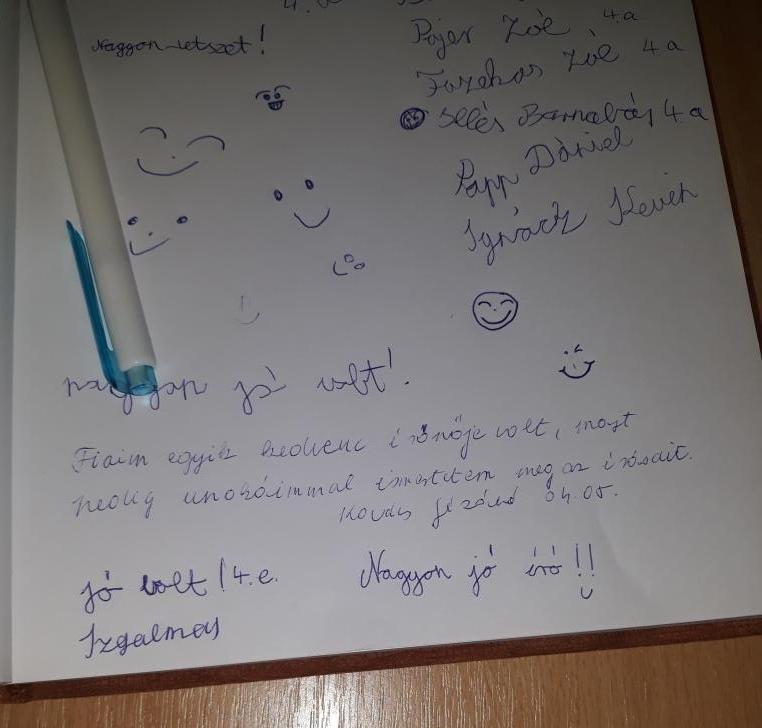 Nagyon tetszet!
Pajer Zoé 4.a
Fazekas Zoé 4a
Sellés Barnabás 4.a
Papp Dániel
Ignácz Kevin
nagyon jó volt!
Fiaim egyik kedvenc írónője volt, most
pedig unokáimmal ismertetem meg az írásait.
Kovács Gézáné 04.05.
jó volt! 4.e.
Izgalmas
Nagyon jó író!!